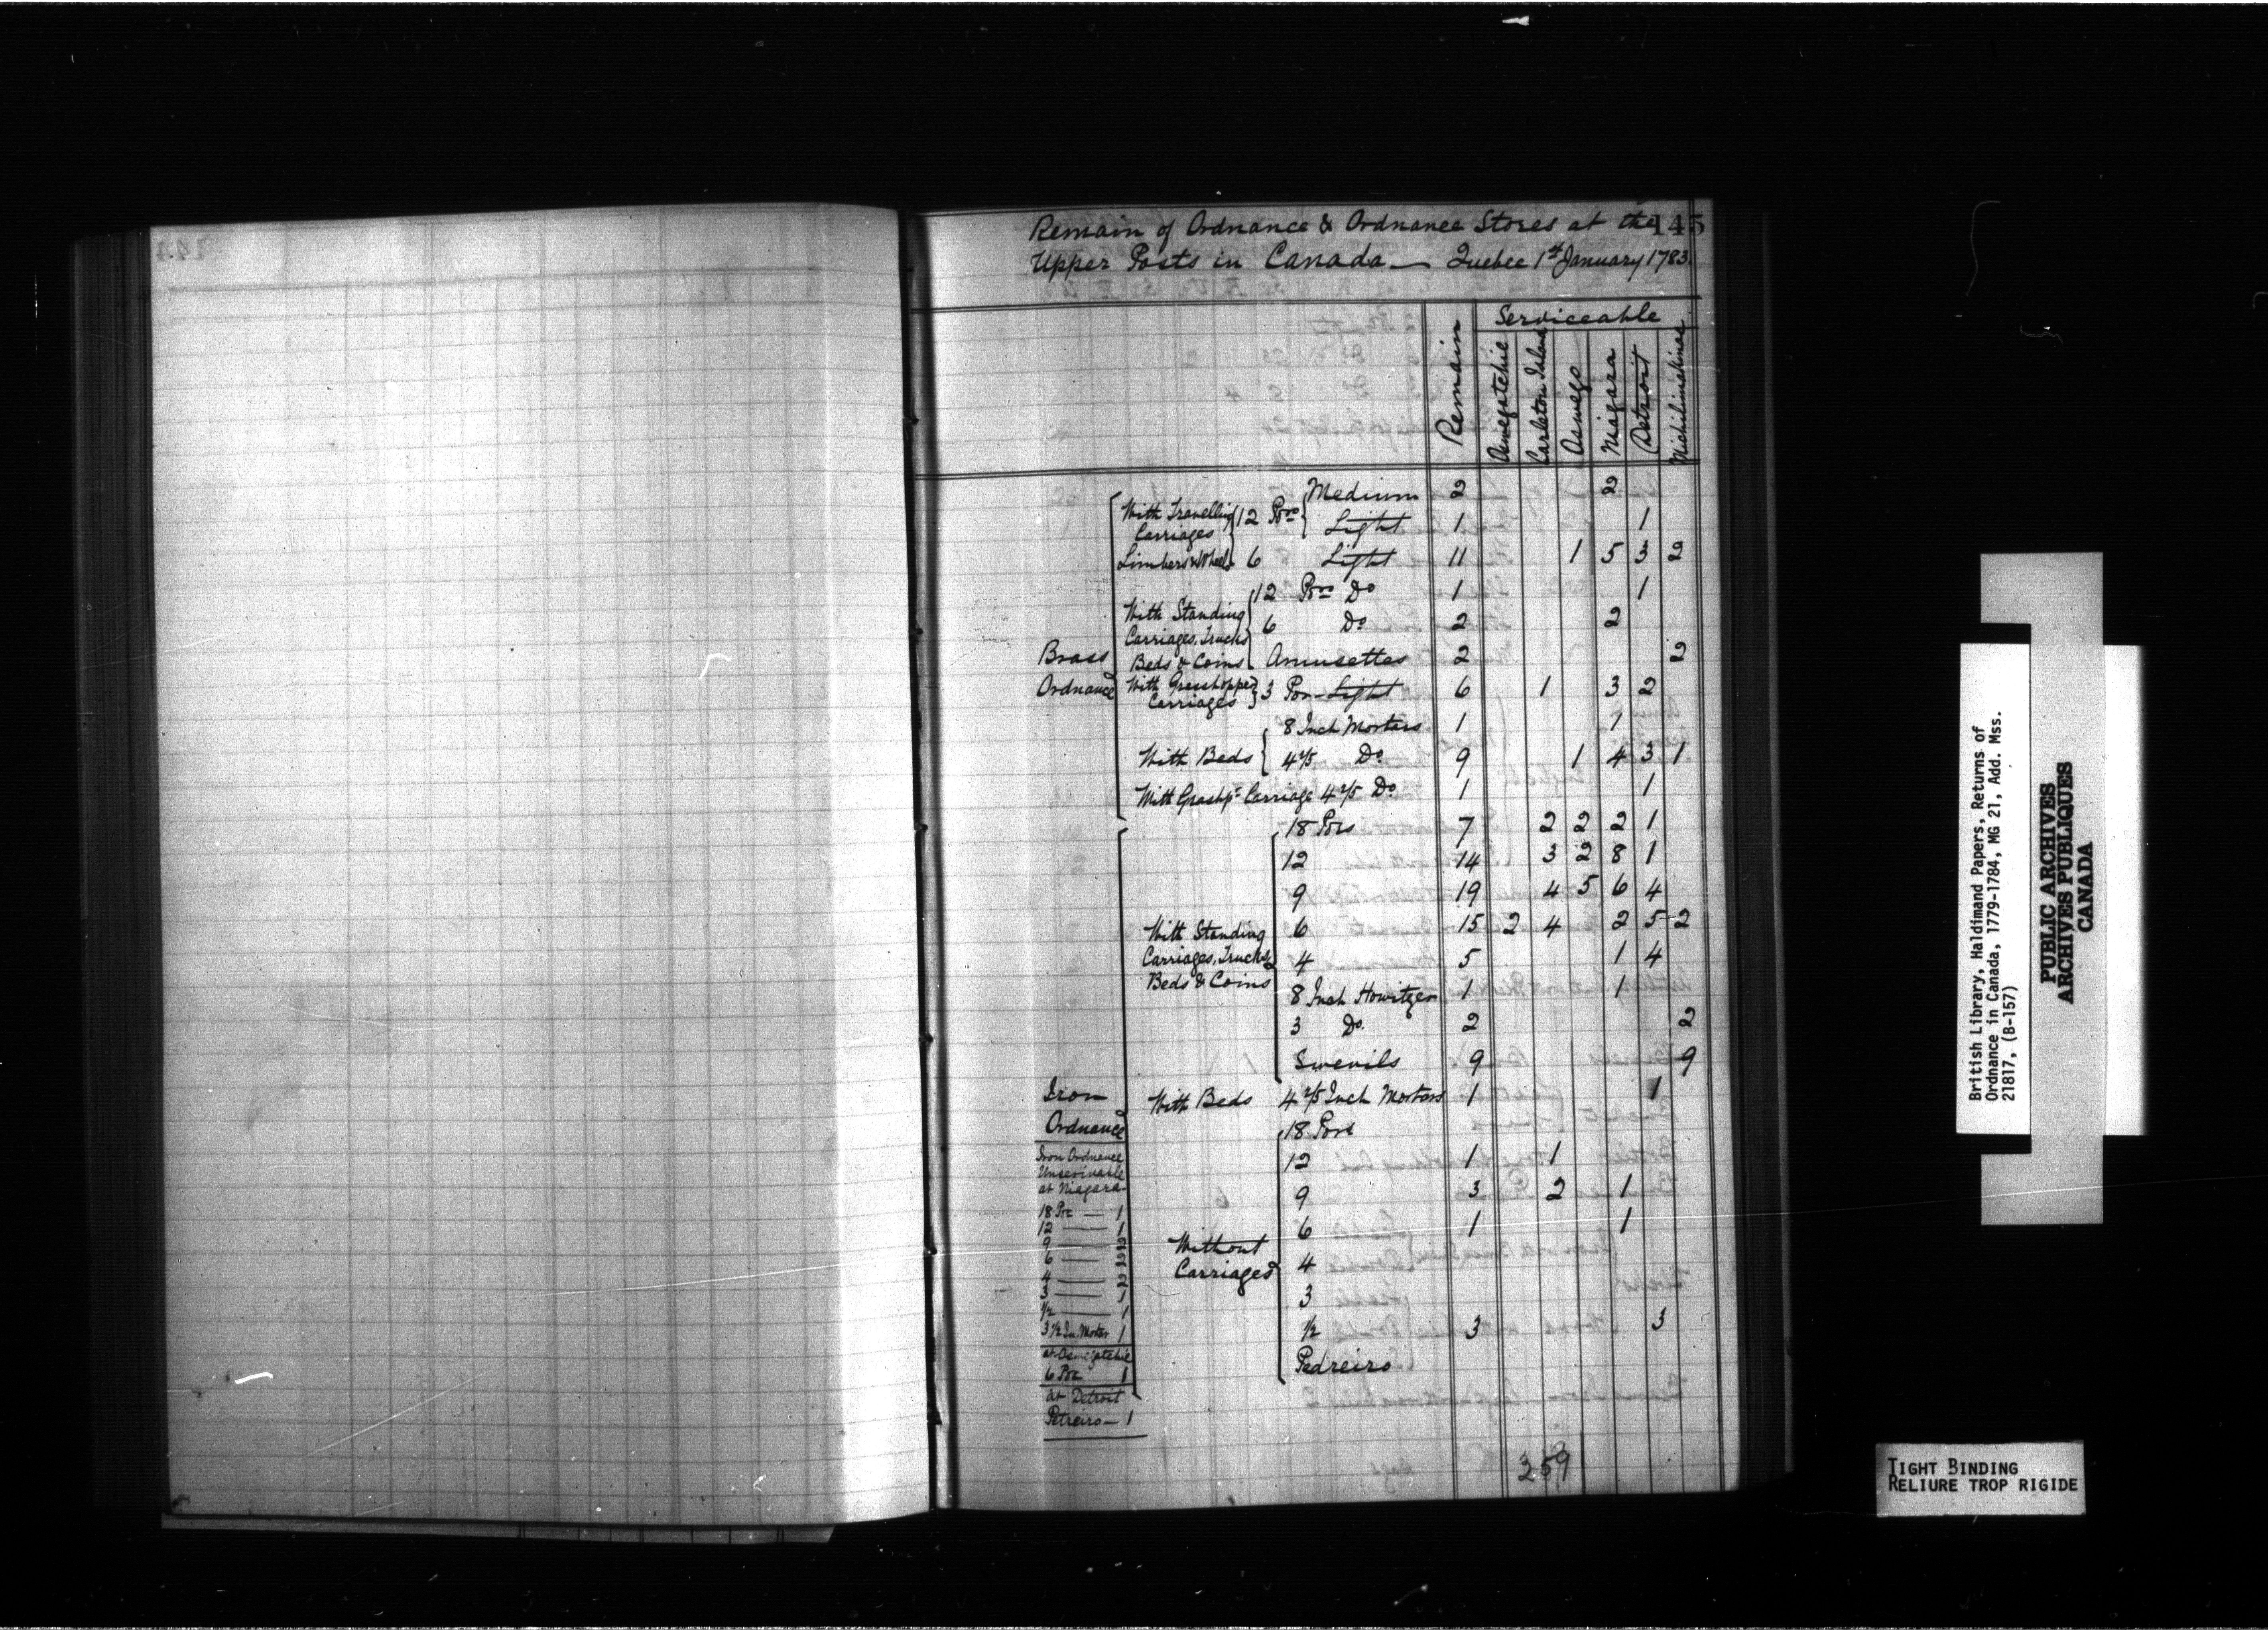 Remain of Ordnance & Ordnance Stores at the 145
Upper Posts in Canada — Quebec 1st January 1783.
Remain
Serviceable
Oswegatchie
Carleton Island
Oswego
Niagara
Detroit
Michilimakinac
Brass
Ordnance
With Travelling
Carriages
Limbers & Wheels
12 Pors Medium 2 2
Light 1 1
6 Light 11 1 5 3 2
With Standing
Carriages, Trucks
Beds & Coins
12 Pors Do 1 1
6 Do 2 2
Amusettes 2 2
With Grasshopper
Carriages
3 Por Light 6 1 3 2
With Beds
8 Inch Mortars 1 1
4 2/5 Do 9 1 4 3 1
With Grashpr Carriage 4 2/5 Do 1 1
Iron
Ordnance
With Standing
Carriages, Trucks,
Beds & Coins
18 Pors 7 2 2 2 1
12 14 3 2 8 1
9 19 4 5 6 4
6 15 2 4 2 5 2
4 5 1 4
8 Inch Howitzer 1 1
3 Do. 2 2
Swevils 9 9
With Beds 4 2/5 Inch Mortars 1 1
Without
Carriages
18 Pors
12 1 1
9 3 2 1
6 1 1
4
3
1/2 3 3
Pedreiro
Iron Ordnance
Unserviceable
at Niagara
18 Por — 1
12 — 1
9 — 2
6 — 2
4 — 2
3 — 1
1/2 — 1
3 1/2 In. Mortar 1
at Oswegatchie
6 Por 1
at Detroit
Petreiro — 1
359
British Library, Haldimand Papers, Returns of
Ordnance in Canada, 1779-1784, MG 21, Add. Mss.
21817, (B-157)
PUBLIC ARCHIVES
ARCHIVES PUBLIQUES
CANADA
TIGHT BINDING
RELIURE TROP RIGIDE